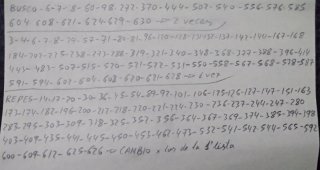 BUSCO - 6 - 7 - 8 - 60 - 98 - 272 - 370 - 444 - 507 - 540 - 556 - 576 - 585
604 - 608 - 621 - 624 - 629 - 630 => 2 veces
3 - 4 - 6 - 7 - 8 - 29 - 57 - 71 - 80 - 81 - 96 - 110 - 128 - 134 - 137 - 142 - 144 - 167 - 168
184 - 207 - 225 - 238 - 243 - 288 - 319 - 321 - 340 - 348 - 368 - 377 - 388 - 396 - 414
443 - 483 - 507 - 515 - 520 - 521 - 522 - 531 - 550 - 558 - 567 - 568 - 578 - 587
591 - 594 - 602 - 604 - 608 - 620 - 621 - 628 => 1 vez
REPES - 14 - 17 - 20 - 30 - 36 - 35 - 54 - 89 - 92 - 101 - 106 - 125 - 126 - 127 - 147 - 151 - 163
173 - 174 - 182 - 196 - 200 - 217 - 218 - 220 - 221 - 224 - 230 - 236 - 237 - 244 - 247 - 280
283 - 295 - 303 - 309 - 318 - 325 - 352 - 356 - 364 - 367 - 369 - 374 - 385 - 394 - 398
403 - 409 - 435 - 441 - 445 - 450 - 453 - 462 - 473 - 532 - 541 - 542 - 544 - 565 - 592
600 - 609 - 612 - 625 - 626 => CAMBIO x los de la 1ª lista